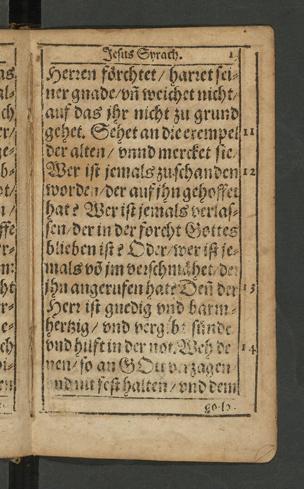 Jesus Syrach.
Herren förchtet / harret sei-
ner gnade / vñ weichet nicht /
auf das jhr nicht zu grund
gehet. Sehet an die exempel 11
der alten / vnnd mercket sie /
Wer ist jemals zuschanden 12
worden / der auf jhn gehoffet
hat? Wer ist jemals verlas-
sen / der in der forcht Gottes
blieben ist? Oder / wer ist je-
mals võ jm verschmähet / der
jhn angerufen hat? Deñ der 13
Herr ist gnedig vnd barm-
hertzig / vnd vergibt sünde
vnd hilft in der not. Weh de 14
nen / so an GOtt verzagen
vnd nit fest halten / vnd dem